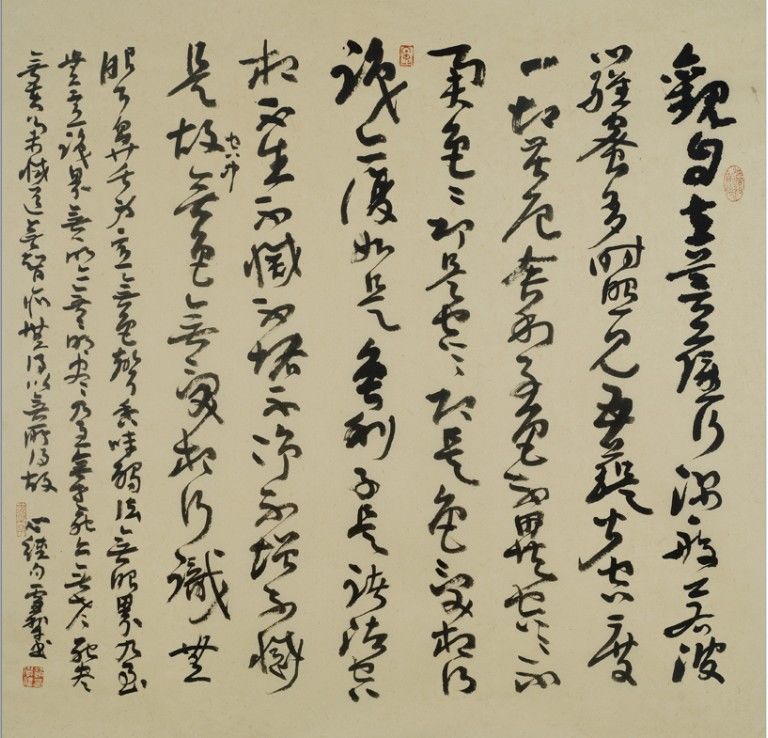 觀自在菩薩行深般若波
羅蜜多時照見五蘊皆空度
一切苦厄舍利子色不異空〻不
異色〻即是空〻即是色受想行
識亦復如是舍利子是諸法空
相不生不滅不垢不淨不增不減
是故空中無色無受想行識無
眼耳鼻舌身意無色聲香味觸法無眼界乃至
無意識界無明亦無〻明盡乃至無老死亦無老死盡
無苦集滅道無智亦無得以無所得故 心經句 書